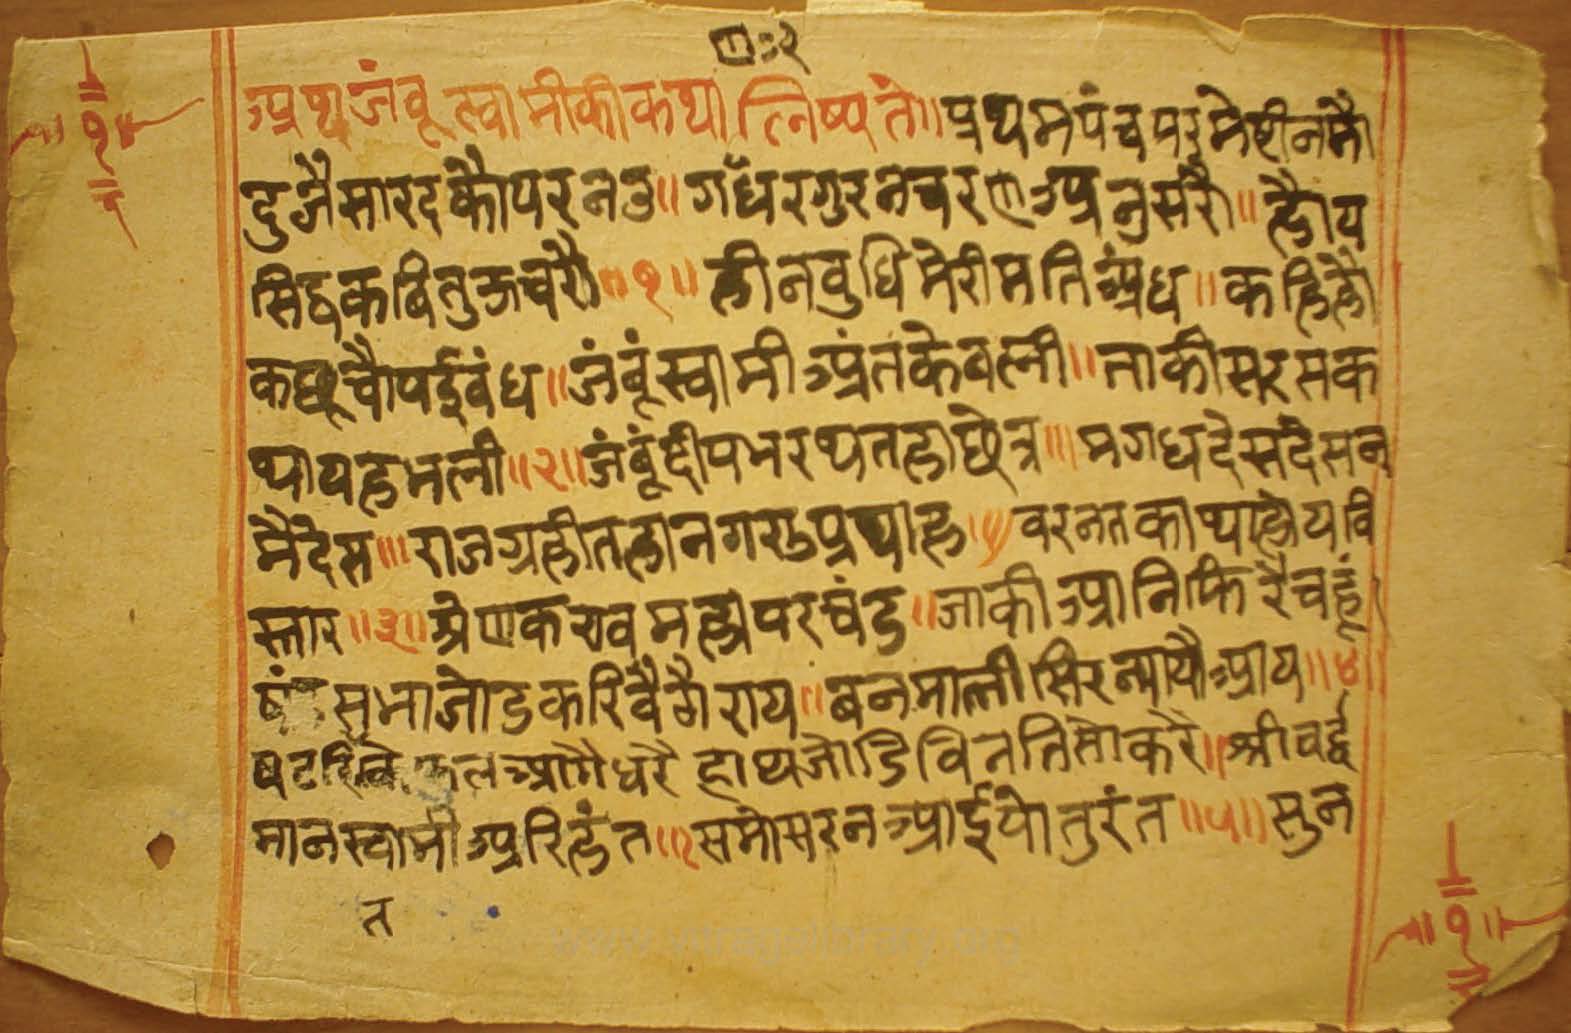 अथजंबूस्वामीकीकथालिष्यते॥प्रथमपंचपरमेष्टीनमौ
दुजैसारदकौपरनउ॥गणधरगुरनचरणअनुसरौ॥होय
सिद्धकबितुऊचरौ॥१॥हीनवुधिमेरीमतिअंध॥कहिहौ
कछूचौपईबंध॥जंबूंस्वामीअंतकेवली॥ताकीसरसक
थायहभली॥२॥जंबूंद्दीपभरथतहाछेत्र॥मगधदेसदेसन
मैदेस॥राजग्रहीतहानगर वरनतकाथाहोयवि
स्तार॥३॥श्रेणकरावमहापरचंड॥जाकीआनिफिरैचहूं
षंडसभाजोडकरिवैठैराय॥बनमालीसिरन्यायौआय॥४॥
षटरितिकेफलआगैधरै हाथजोडिविनतिसोकरै॥श्रीवर्द्ध
मानस्वामीअरिहंत॥समोसरनआईयोतुरंत॥५॥सुन
त
१
१
www.vitragslibrary.org